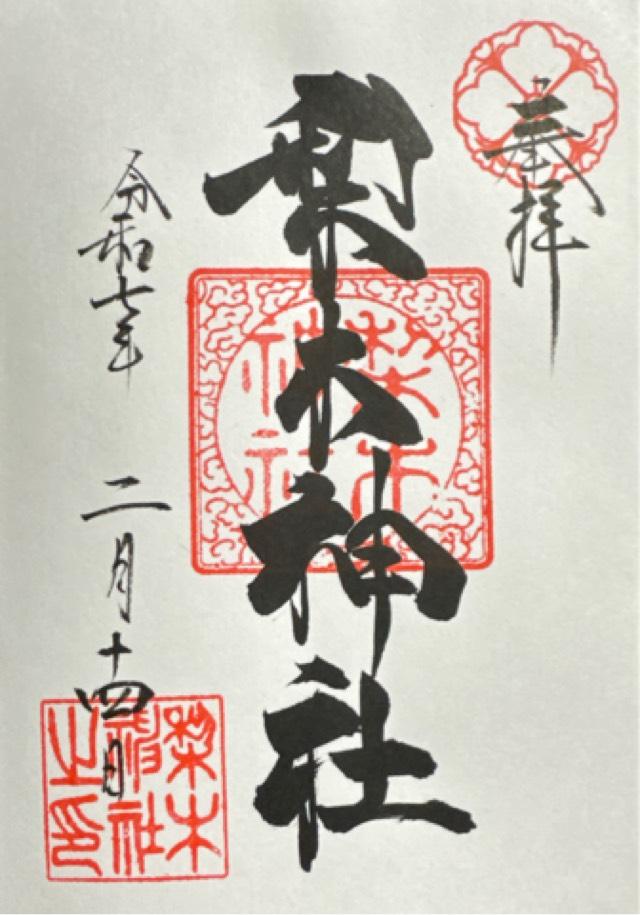 奉拝
梨木神社
梨木
神社
令和七年 二月十四日
梨木
神社
之印